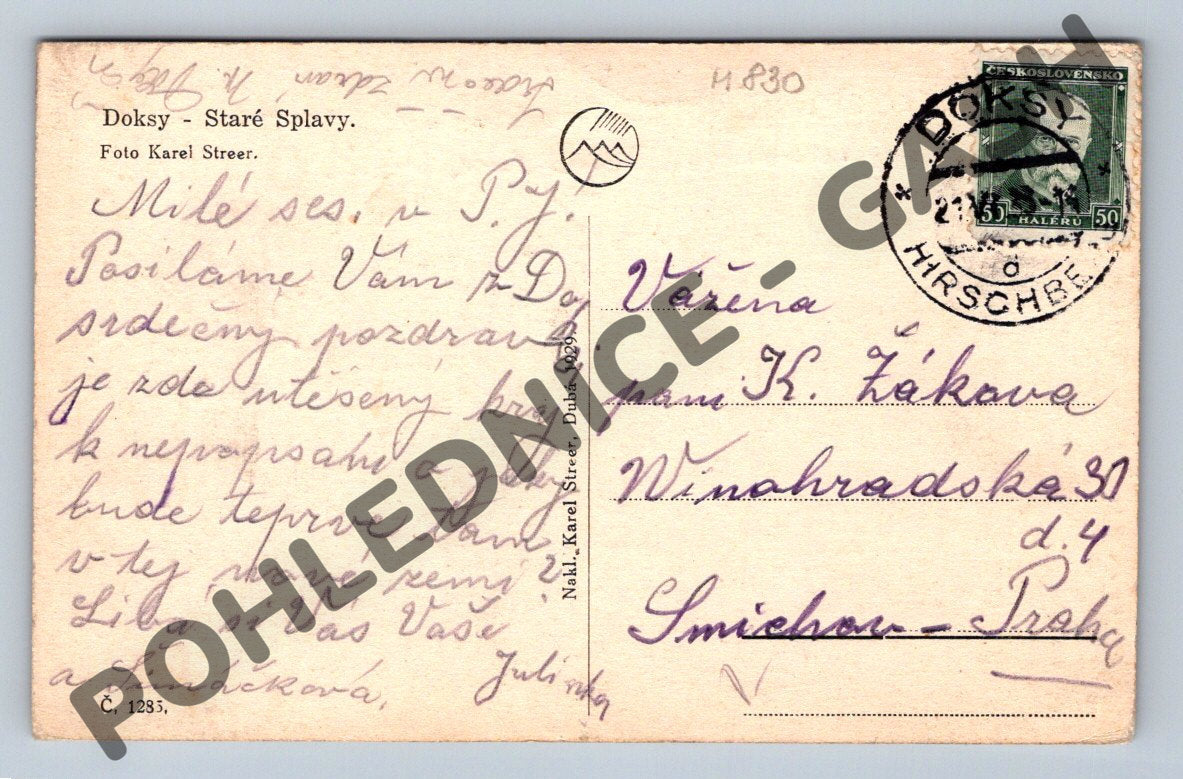 M 830
Doksy - Staré Splavy.
Foto Karel Streer.
Milé ses. v P. J.!
Posíláme Vám z Dok
srdečný pozdrav
je zde utěšený kraj
k nepopsání a jaký
bude teprve tam
v tej nové zemi?
Líbá si Vás Vaše
a Šimáčková. Julinka
Č. 1285,
Nakl. Karel Streer, Dubá 1929.
ČESKOSLOVENSKO
50 HALÉŘŮ 50
DOKSY
21. VII
HIRSCHBE
d
Vážená
paní K. Žákova
Winohradská 31
d. 4
Smichov - Praha
POHLEDNICE - GASH